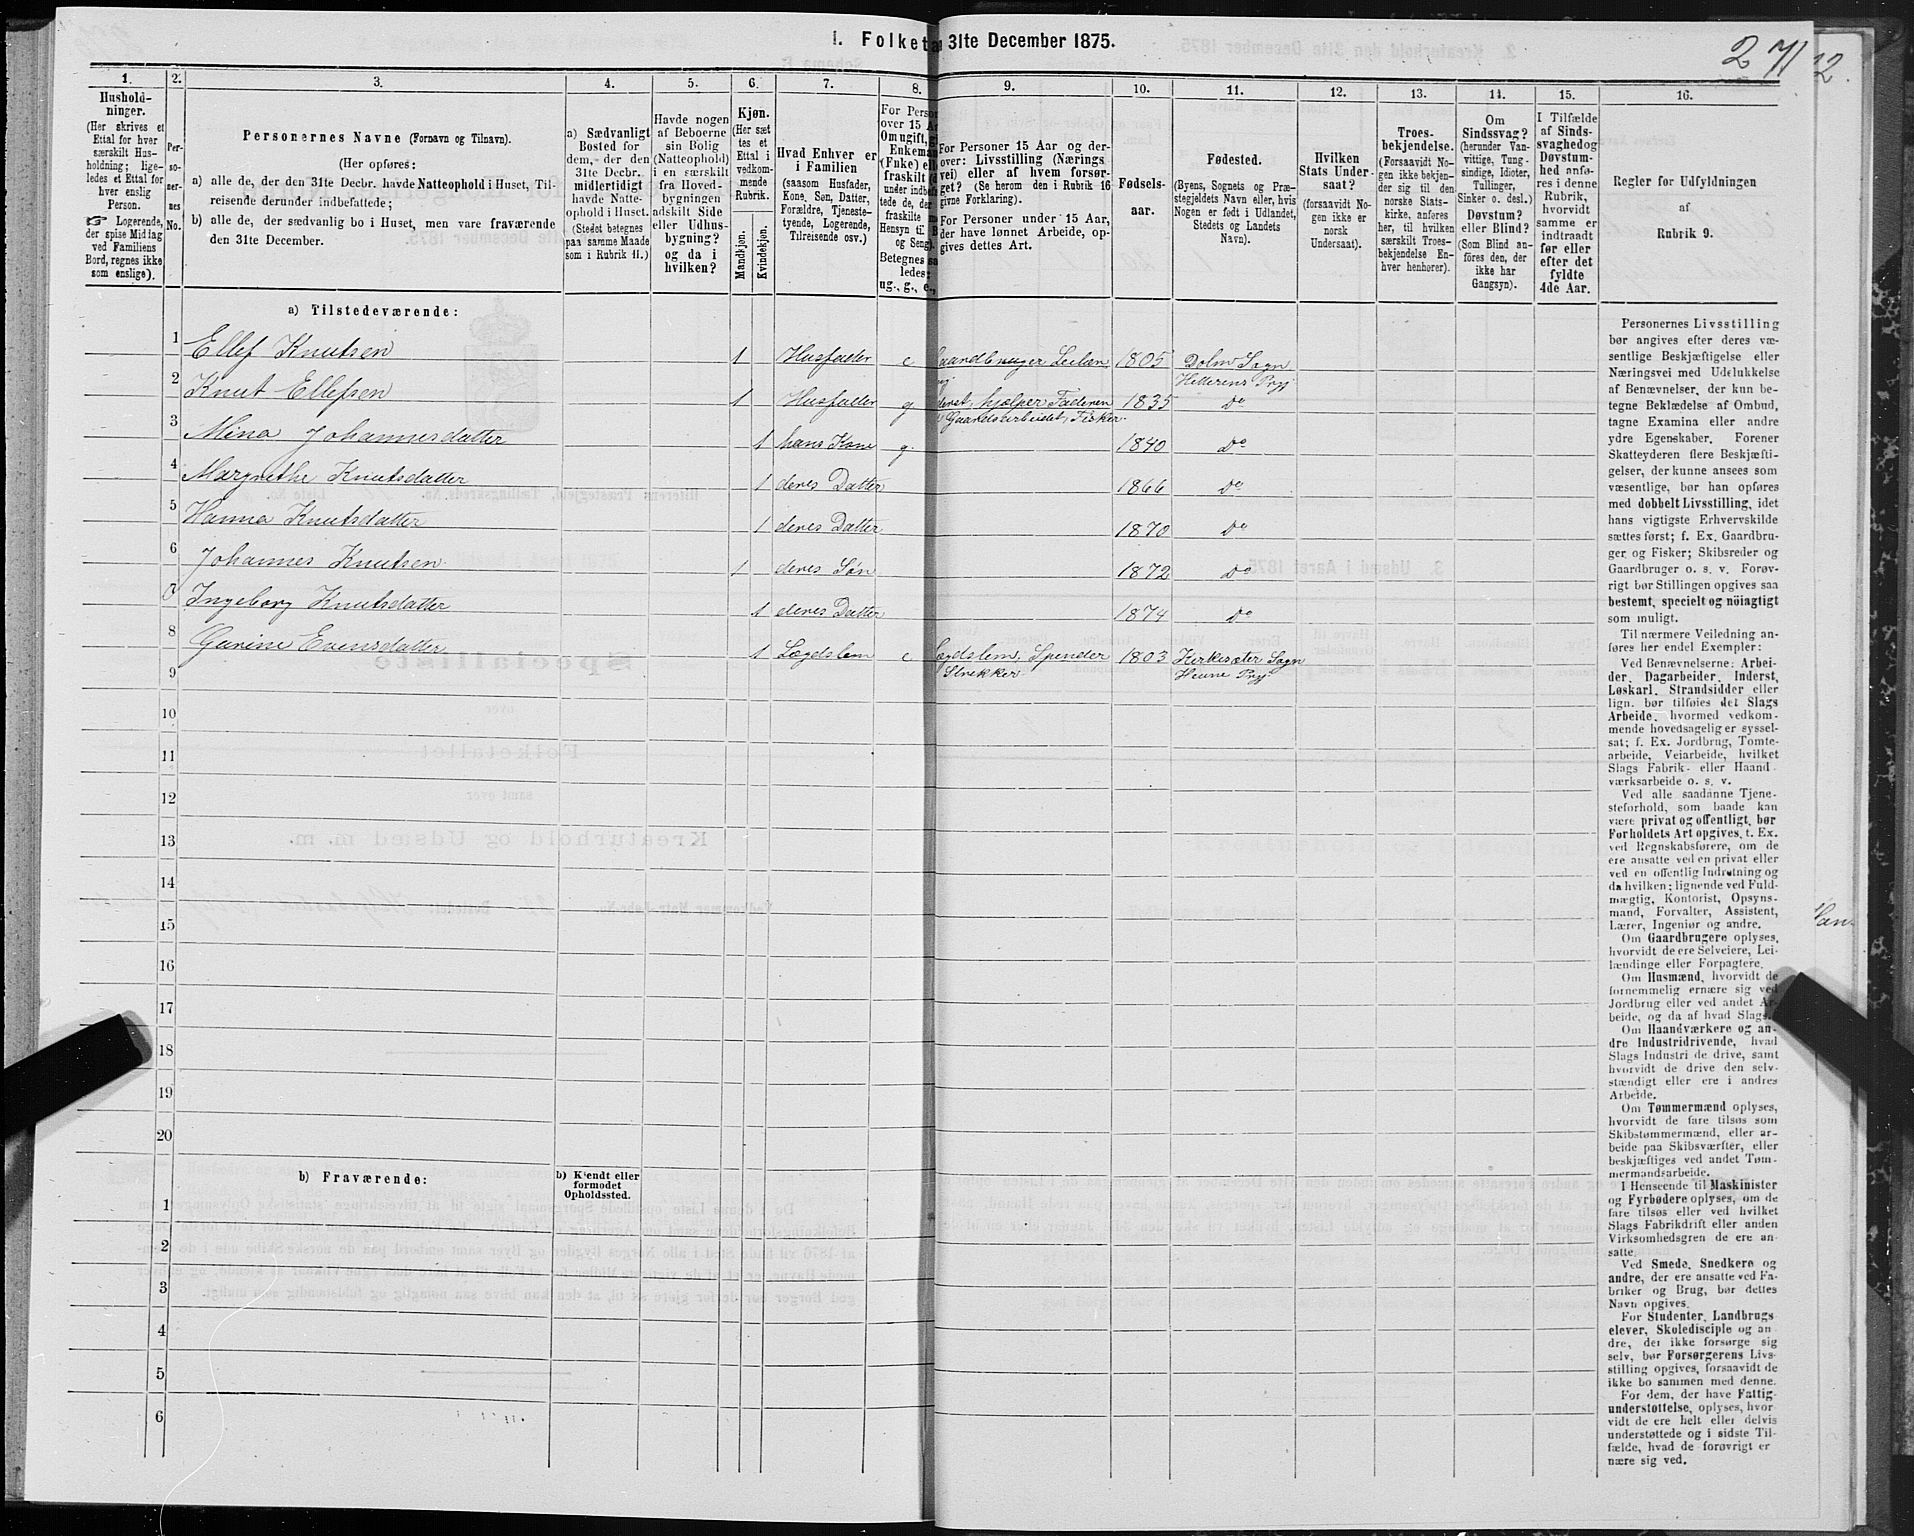 I. Folketæ 31te December 1875.
2 71
12.
1.
2.
3.
4.
5.
6.
7.
8.
9.
10.
11.
12.
13.
14.
15.
16.
Hushold-
ninger.
(Her skrives et
Ettal for hver
særskilt Hus-
holdning; lige-
ledes et Ettal for
hver enslig
Person.
Logerende,
der spise Middag
ved Familiens
Bord, regnes ikke
som enslige).
Per-
so-
ner-
nes
No.
Personernes Navne (Fornavn og Tilnavn).
(Her opføres:
a) alle de, der den 31te Decbr. havde Natteophold i Huset, Til-
reisende derunder indbefattede;
b) alle de, der sædvanlig bo i Huset, men vare fraværende
den 31te December.
a) Sædvanligt
Bosted for
dem, der den
31te Decbr.
midlertidigt
havde Natte-
ophold i Huset.
(Stedet betegnes
paa samme Maade
som i Rubrik 11.)
Havde nogen
af Beboerne
sin Bolig
(Natteophold)
i en særskilt
fra Hoved-
bygningen
adskilt Side
eller Udhus-
bygning?
og da i
hvilken?
Kjøn.
(Her sæt
tes et
Ettal i
vedkom-
mende
Rubrik.
Mandkjøn.
Kvindekjøn.
Hvad Enhver er
i Familien
(saasom Husfader,
Kone, Søn, Datter,
Forældre, Tjeneste-
tyende, Logerende,
Tilreisende osv.)
For Person
over 15 A
Om ugift, g
Enkeman
(Fnke) el
fraskilt (
under indbe
tede de, de
fraskilte
Hensyn til B
og Seng).
Betegnes sa
ledes:
ug., g., e.,
For Personer 15 Aar og der-
over: Livsstilling (Nærings
vei) eller af hvem forsør-
get? (Se herom den i Rubrik 16
givne Forklaring).
For Personer under 15 Aar,
der have lønnet Arbeide, op-
gives dettes Art.
Fødsels-
aar.
Fødested.
(Byens, Sognets og Præ-
stegjeldets Navn eller, hvis
Nogen er født i Udlandet,
Stedets og Landets
Navn).
Hvilken
Stats Under-
saat?
(forsaavidt No-
gen ikke er
norsk
Undersaat).
Troes-
bekjendelse.
(Forsaavidt No-
gen ikke bekjen-
der sig til den
norske Stats-
kirke, anføres
her, til hvilken
særskilt Troes-
bekjendelse En-
hver henhører).
Om
Sindssvag?
(herunder Van-
vittige, Tung-
sindige, Idioter,
Tullinger,
Sinker o. desl.)
Døvstum?
eller Blind?
(Som Blind an-
føres den, der
ikke har
Gangsyn).
I Tilfælde
af Sinds-
svaghed og
Døvstum-
hed anfø-
res i denne
Rubrik,
hvorvidt
samme er
indtraadt
før eller
efter det
fyldte
4de Aar.
Regler for Udfyldningen
af
Rubrik 9.
a) Tilstedeværende:
1 Ellef Knutsen 1 Husfader e Gaardbruger Leilen 1805 Dolm Sogn
Hitterens Prgj
2 Knut Ellefsen 1 Husfader g hjælper Faderen 1835 Do
Gaardsarbeidet, Fisker
3 Mina Johannesdatter 1 hans Kone g. 1840 Do
4 Margrethe Knutsdatter 1 deres Datter 1866 Do
5 Hanna Knutsdatter 1 deres Datter 1870 Do
6 Johannes Knutsen 1 deres Søn 1872 Do
7 Ingeborg Knutsdatter 1 deres Datter 1874 Do
8 Gurine Evensdatter 1 Lægdslem e Lægdslem, Spinder 1803 Kirkesæter Sogn
9 Strikker Hevne Prgj
10
11
12
13
14
15
16
17
18
19
20
b) Fraværende:
b) Kjendt eller
formodet
Opholdssted.
1
2
3
4
5
6
Personernes Livsstilling
bør angives efter deres væ-
sentlige Beskjæftigelse eller
Næringsvei med Udelukkelse
af Benævnelser, der kun be-
tegne Beklædelse af Ombud,
tagne Examina eller andre
ydre Egenskaber. Forener
Skatteyderen flere Beskjæfti-
gelser, der kunne ansees som
væsentlige, bør han opføres
med dobbelt Livsstilling, idet
hans vigtigste Erhvervskilde
sættes først; f. Ex. Gaardbru-
ger og Fisker; Skibsreder og
Gaardbruger o. s. v. Forøv-
rigt bør Stillingen opgives saa
bestemt, specielt og nöiagtigt
som muligt.
Til nærmere Veiledning an-
føres her endel Exempler:
Ved Benævnelserne: Arbei-
der, Dagarbeider, Inderst,
Løskarl, Strandsidder eller
lign. bør tilføies det Slags
Arbeide, hvormed vedkom-
mende hovedsagelig er syssel-
sat; f. Ex. Jordbrug, Tomte-
arbeide, Veiarbeide, hvilket
Slags Fabrik- eller Haand-
værksarbeide o. s. v.
Ved alle saadanne Tjene-
steforhold, som baade kan
være privat og offentligt, bør
Forholdets Art opgives, t. Ex.
ved Regnskabsførere, om de
ere ansatte ved en privat eller
ved en offentlig Indretning og
da hvilken; lignende ved Fuld-
mægtig, Kontorist, Opsyns-
mand, Forvalter, Assistent,
Lærer, Ingeniør og andre.
Om Gaardbrugere oplyses,
hvorvidt de ere Selveiere, Lei-
lændinge eller Forpagtere.
Om Husmænd, hvorvidt de
fornemmelig ernære sig ved
Jordbrug eller ved andet Ar-
beide, og da af hvad Slags.
Om Haandværkere og an-
dre Industridrivende, hvad
Slags Industri de drive, samt
hvorvidt de drive den selv-
stændigt eller ere i andres
Arbeide.
Om Tømmermænd oplyses,
hvorvidt de fare tilsøs som
Skibstømmermænd, eller ar-
beide paa Skibsværfter, eller
beskjæftiges ved andet Tøm-
mermandsarbeide.
I Henseende til Maskinister
og Fyrbødere oplyses, om de
fare tilsøs eller ved hvilket
Slags Fabrikdrift eller anden
Virksomhedsgren de ere an-
satte.
Ved Smede, Snedkere og
andre, der ere ansatte ved Fa-
briker og Brug, bør dettes
Navn opgives.
For Studenter, Landbrugs-
elever, Skoledisciple og an-
dre, der ikke forsørge sig
selv, bør Forsørgerens Livs-
stilling opgives, forsaavidt de
ikke bo sammen med denne.
For dem, der have Fattig-
understøttelse, oplyses, hvor-
vidt de ere helt eller delvis
understøttede og i sidste Til-
fælde, hvad de forøvrigt er
nære sig ved.